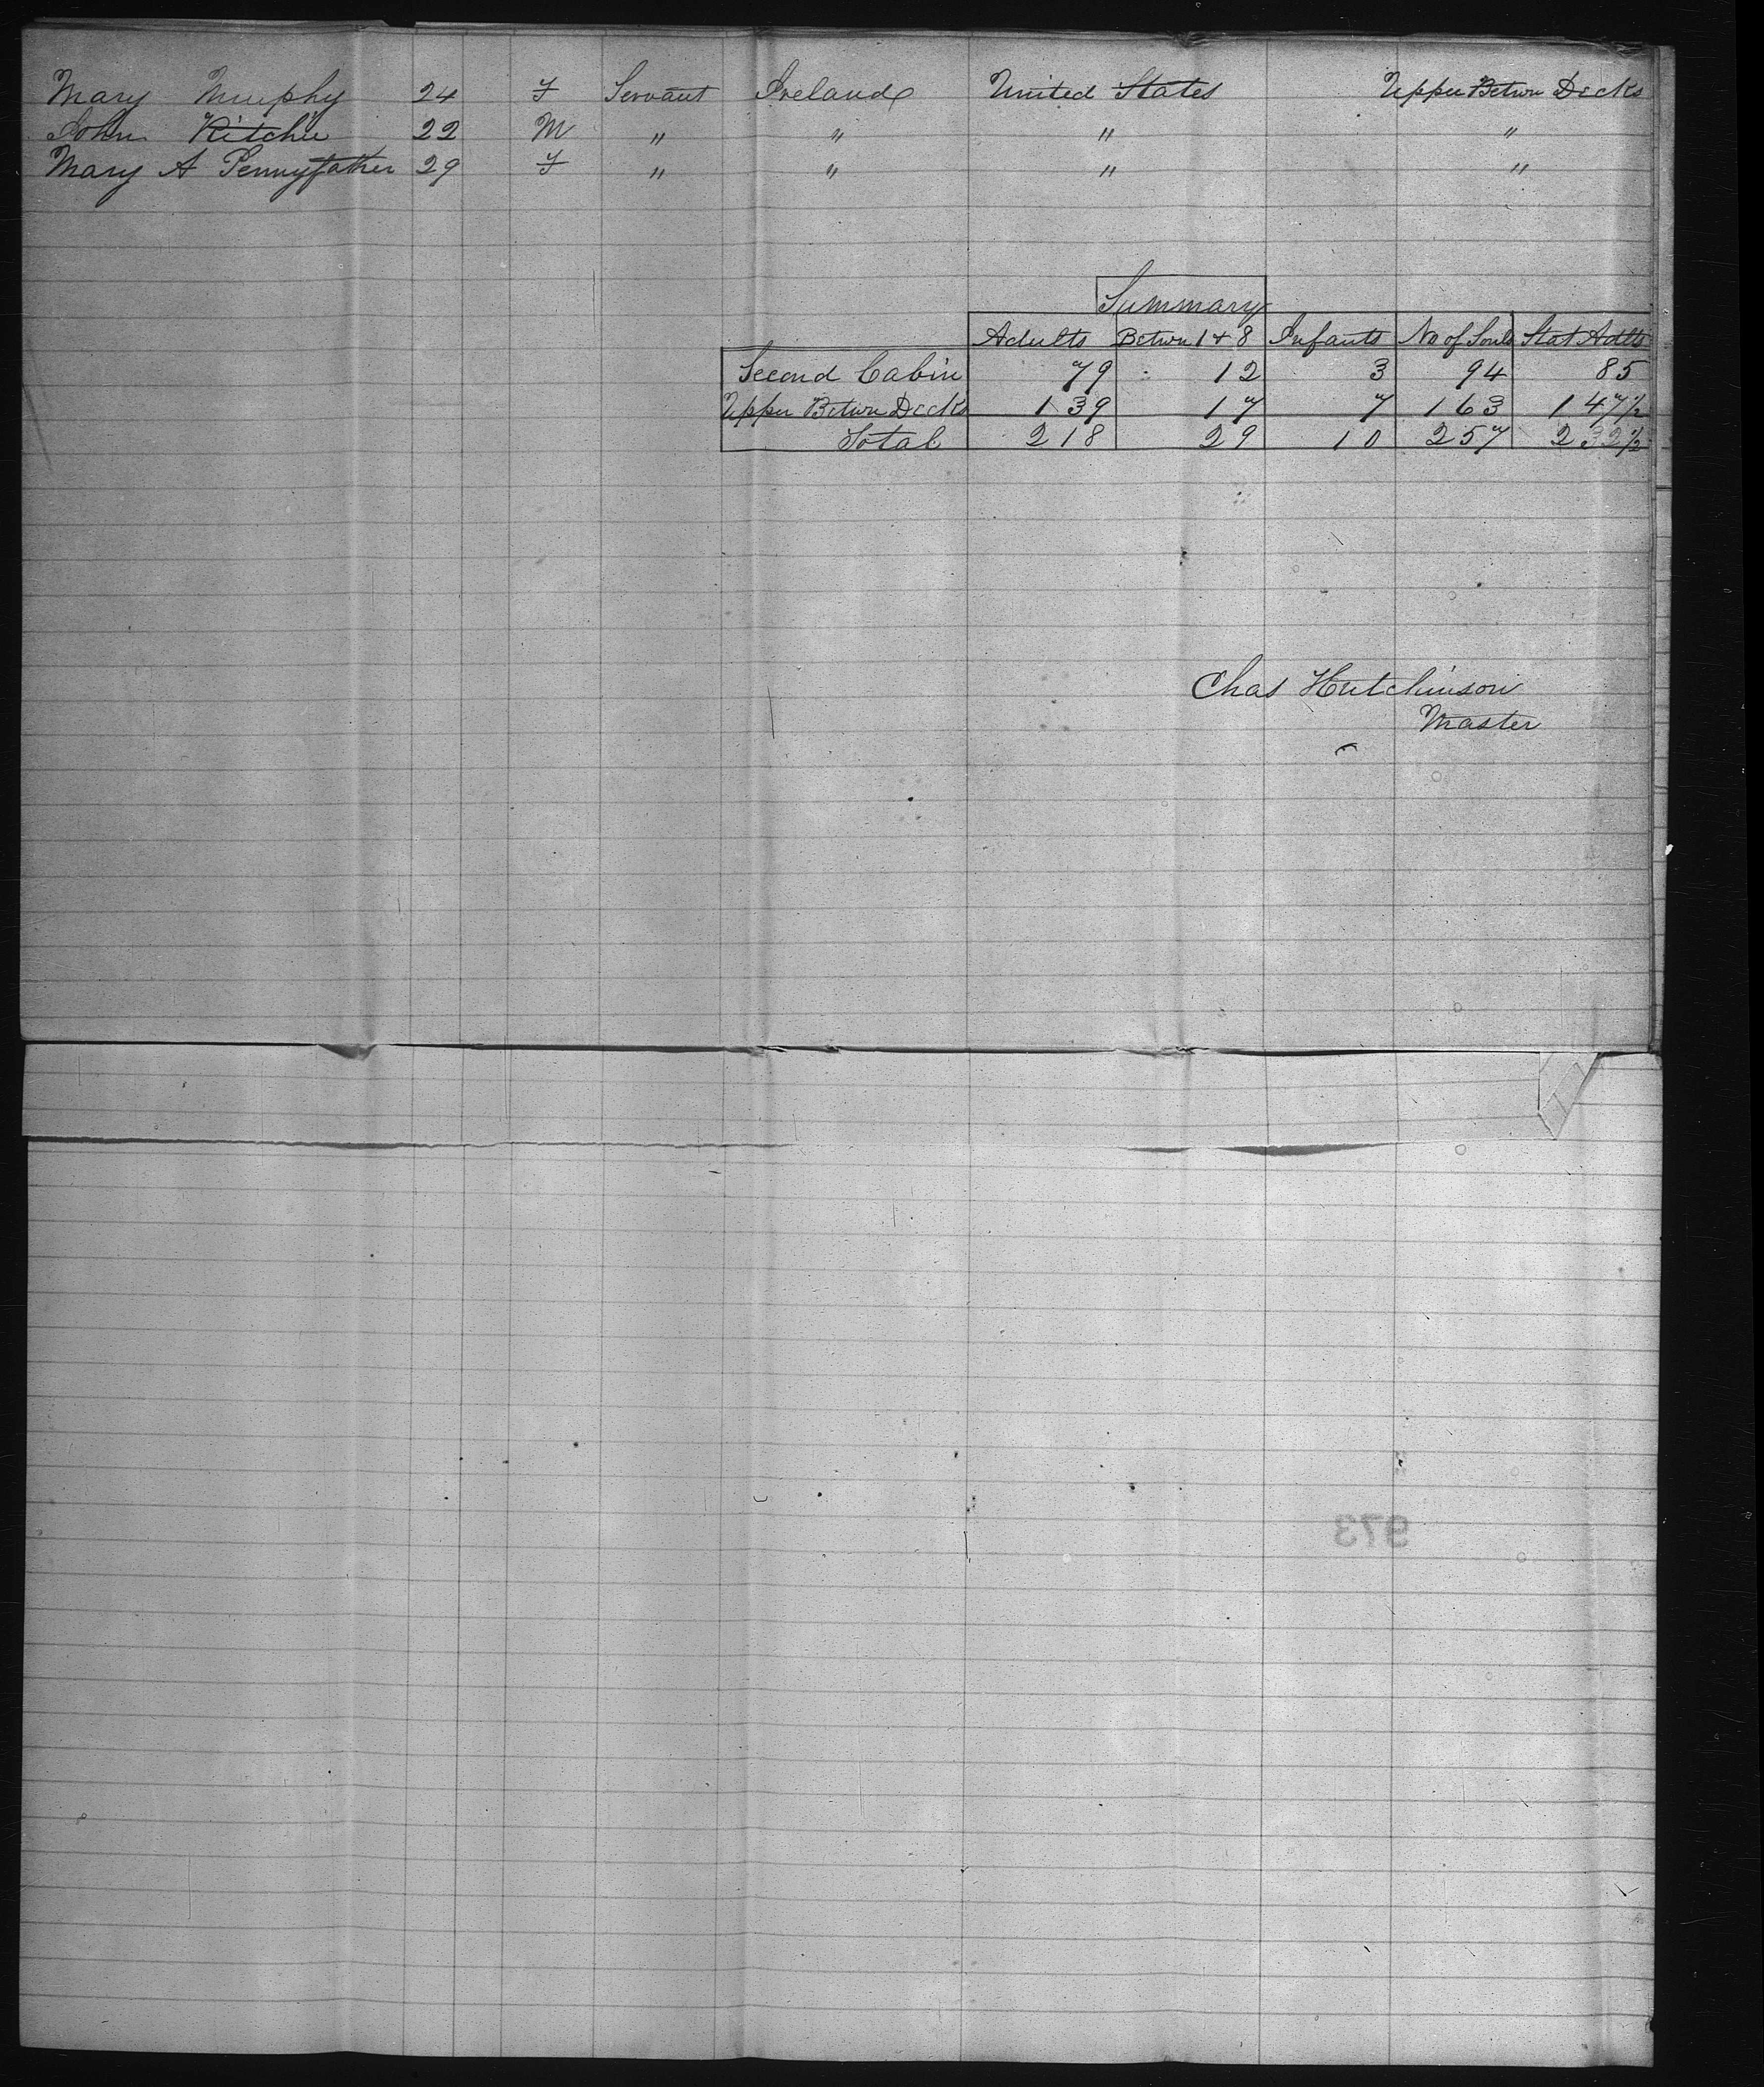 Mary Murphy 24 F Servant Ireland United States Upper Betwn Decks
John Ritchie 22 M " " " "
Mary A Pennyfather 29 F " " " "
Summary
Adults Betwn 1 & 8 Infants No of Souls Stat Adlts
Second Cabin 79 12 3 94 85
Upper Betwn Decks 139 17 7 163 147½
Total 218 29 10 257 232½
Chas Hutchinson
Master
973